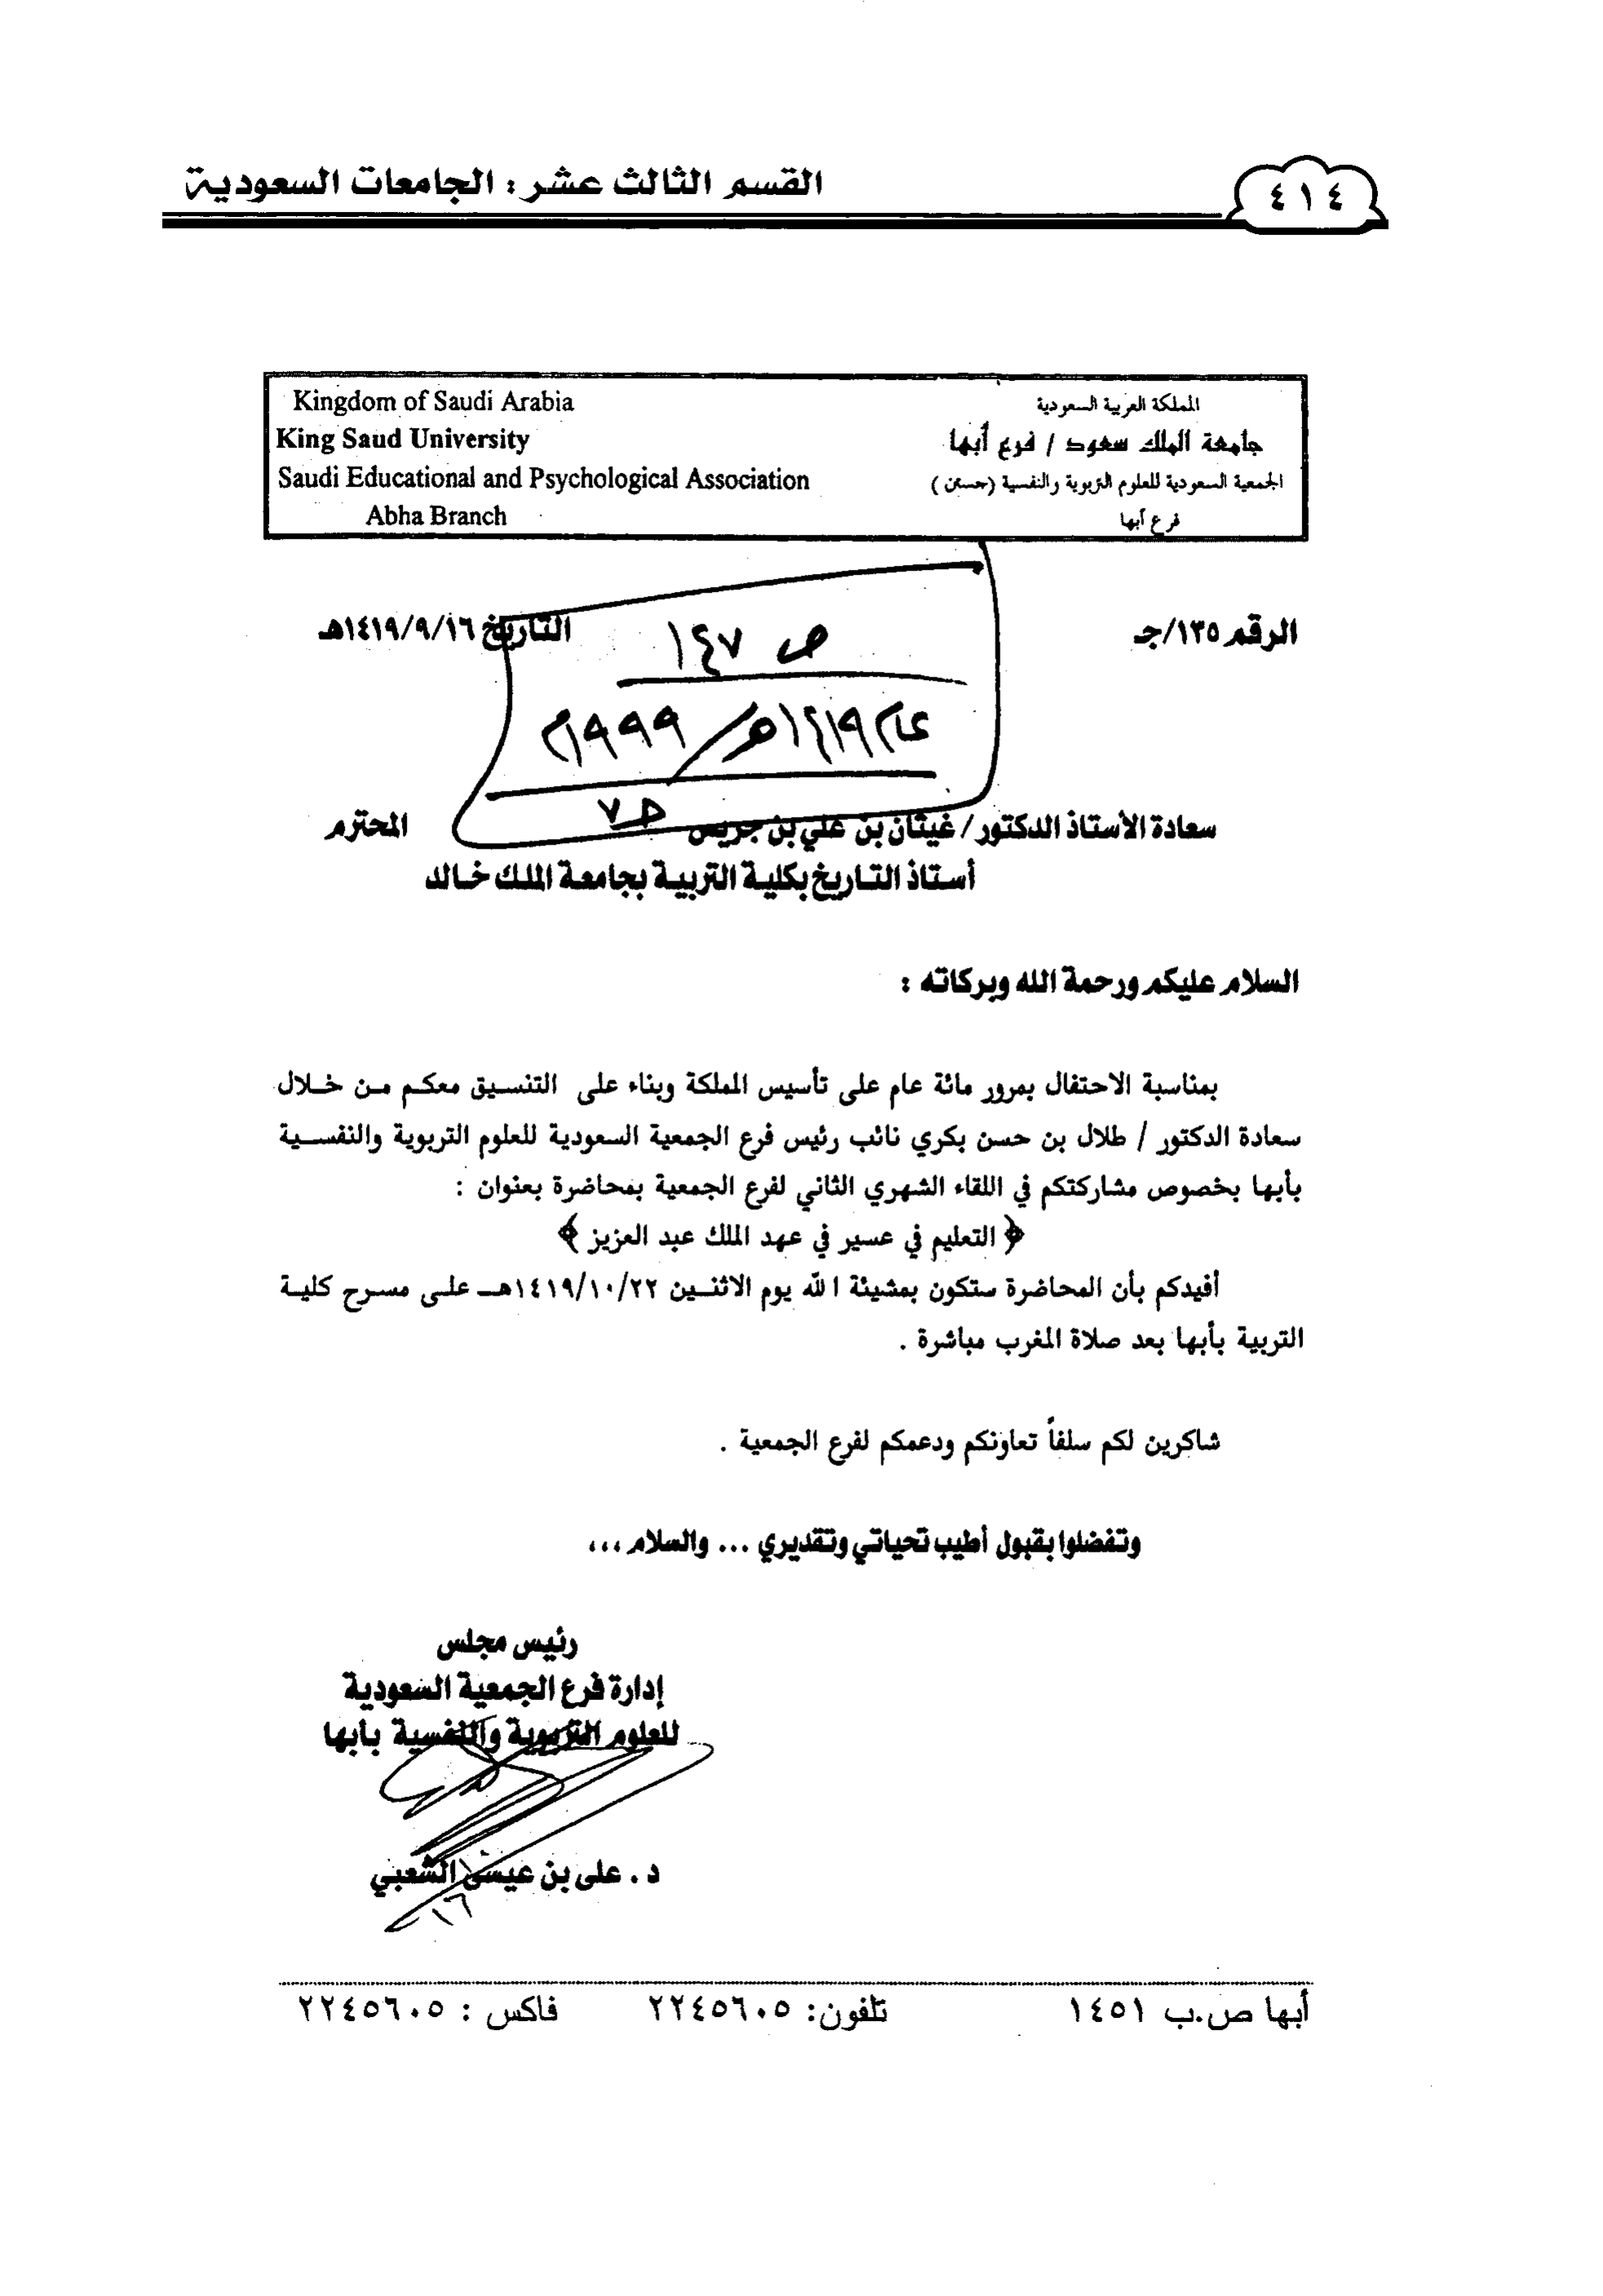 ٤١٤
القسم الثالث عشر : الجامعات السعودية
Kingdom of Saudi Arabia
King Saud University
Saudi Educational and Psychological Association
Abha Branch
المملكة العربية السعودية
جامعة الملك سعود / فرع أبها
الجمعية السعودية للعلوم التربوية والنفسية (جستن)
فرع أبها
الرقم ١٣٥/جـ
التاريخ ١٤١٩/٩/١٦هـ
ص ١٤٧
عام ١٤١٩هـ / ١٩٩٩م
سعادة الأستاذ الدكتور / غيثان بن علي بن جريس المحترم
أستاذ التاريخ بكلية التربية بجامعة الملك خالد
السلام عليكم ورحمة الله وبركاته :
بمناسبة الاحتفال بمرور مائة عام على تأسيس المملكة وبناء على التنسيق معكم من خلال
سعادة الدكتور / طلال بن حسن بكري نائب رئيس فرع الجمعية السعودية للعلوم التربوية والنفسية
بأبها بخصوص مشاركتكم في اللقاء الشهري الثاني لفرع الجمعية بمحاضرة بعنوان :
﴿ التعليم في عسير في عهد الملك عبد العزيز ﴾
أفيدكم بأن المحاضرة ستكون بمشيئة الله يوم الاثنين ١٤١٩/١٠/٢٢هـ على مسرح كلية
التربية بأبها بعد صلاة المغرب مباشرة .
شاكرين لكم سلفاً تعاونكم ودعمكم لفرع الجمعية .
وتفضلوا بقبول أطيب تحياتي وتقديري ... والسلام ،،،
رئيس مجلس
إدارة فرع الجمعية السعودية
للعلوم التربوية والنفسية بأبها
د . على بن عيسى الشعبي
أبها ص.ب ١٤٥١ تلفون: ٢٢٤٥٦٠٥ فاكس : ٢٢٤٥٦٠٥